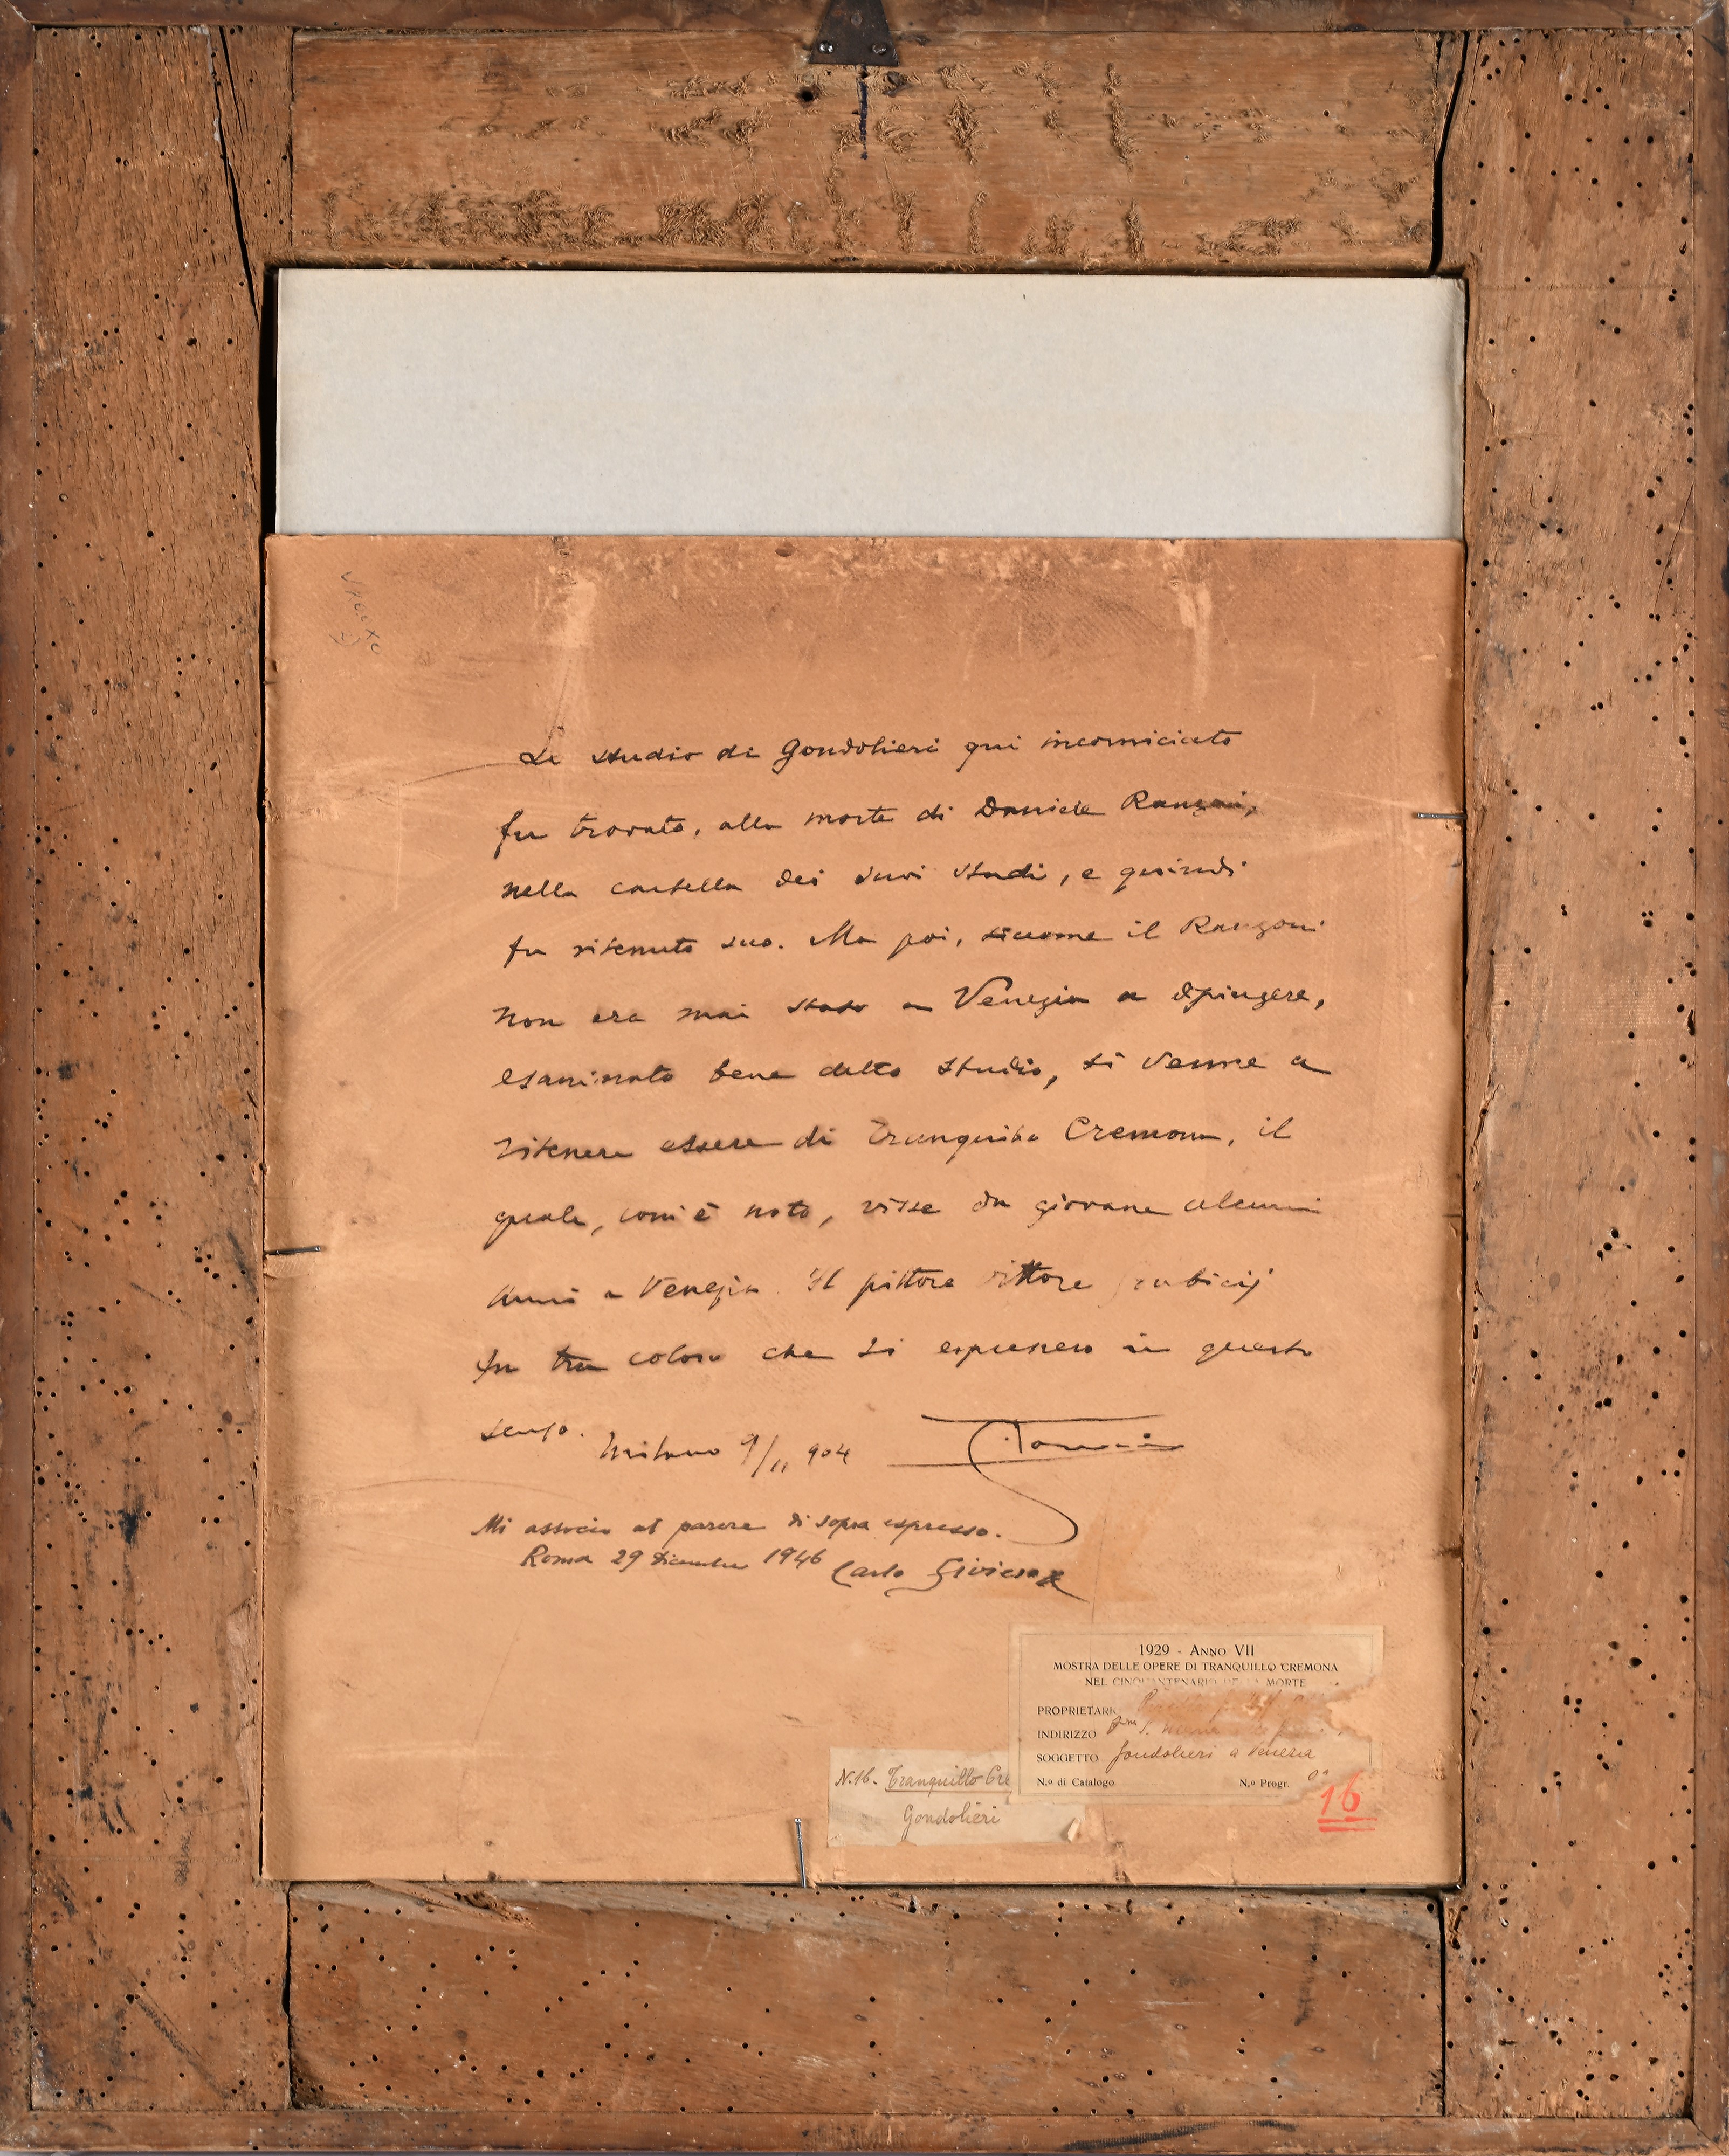 Lo studio di Gondolieri qui incorniciato
fu trovato, alla morte di Daniele Ranzoni,
nella cartella dei suoi studi, e quindi
fu ritenuto suo. Ma poi, siccome il Ranzoni
non era mai stato a Venezia a dipingere,
esaminato bene detto studio, si venne a
ritenere essere di Tranquillo Cremona, il
quale, com'è noto, visse da giovane alcuni
anni a Venezia. Il pittore Vittore Grubicij
fu tra coloro che si espressero in questo
senso. Milano 9/11 904
Mi associo al parere di sopra espresso.
Roma 29 Dicembre 1946 Carlo Siviero
1929 - ANNO VII
MOSTRA DELLE OPERE DI TRANQUILLO CREMONA
NEL CINQUANTENARIO DELLA MORTE
PROPRIETARIO
INDIRIZZO
SOGGETTO Gondolieri a Venezia
N.o di Catalogo N.o Progr.
16
N.16. Tranquillo Cre
Gondolieri